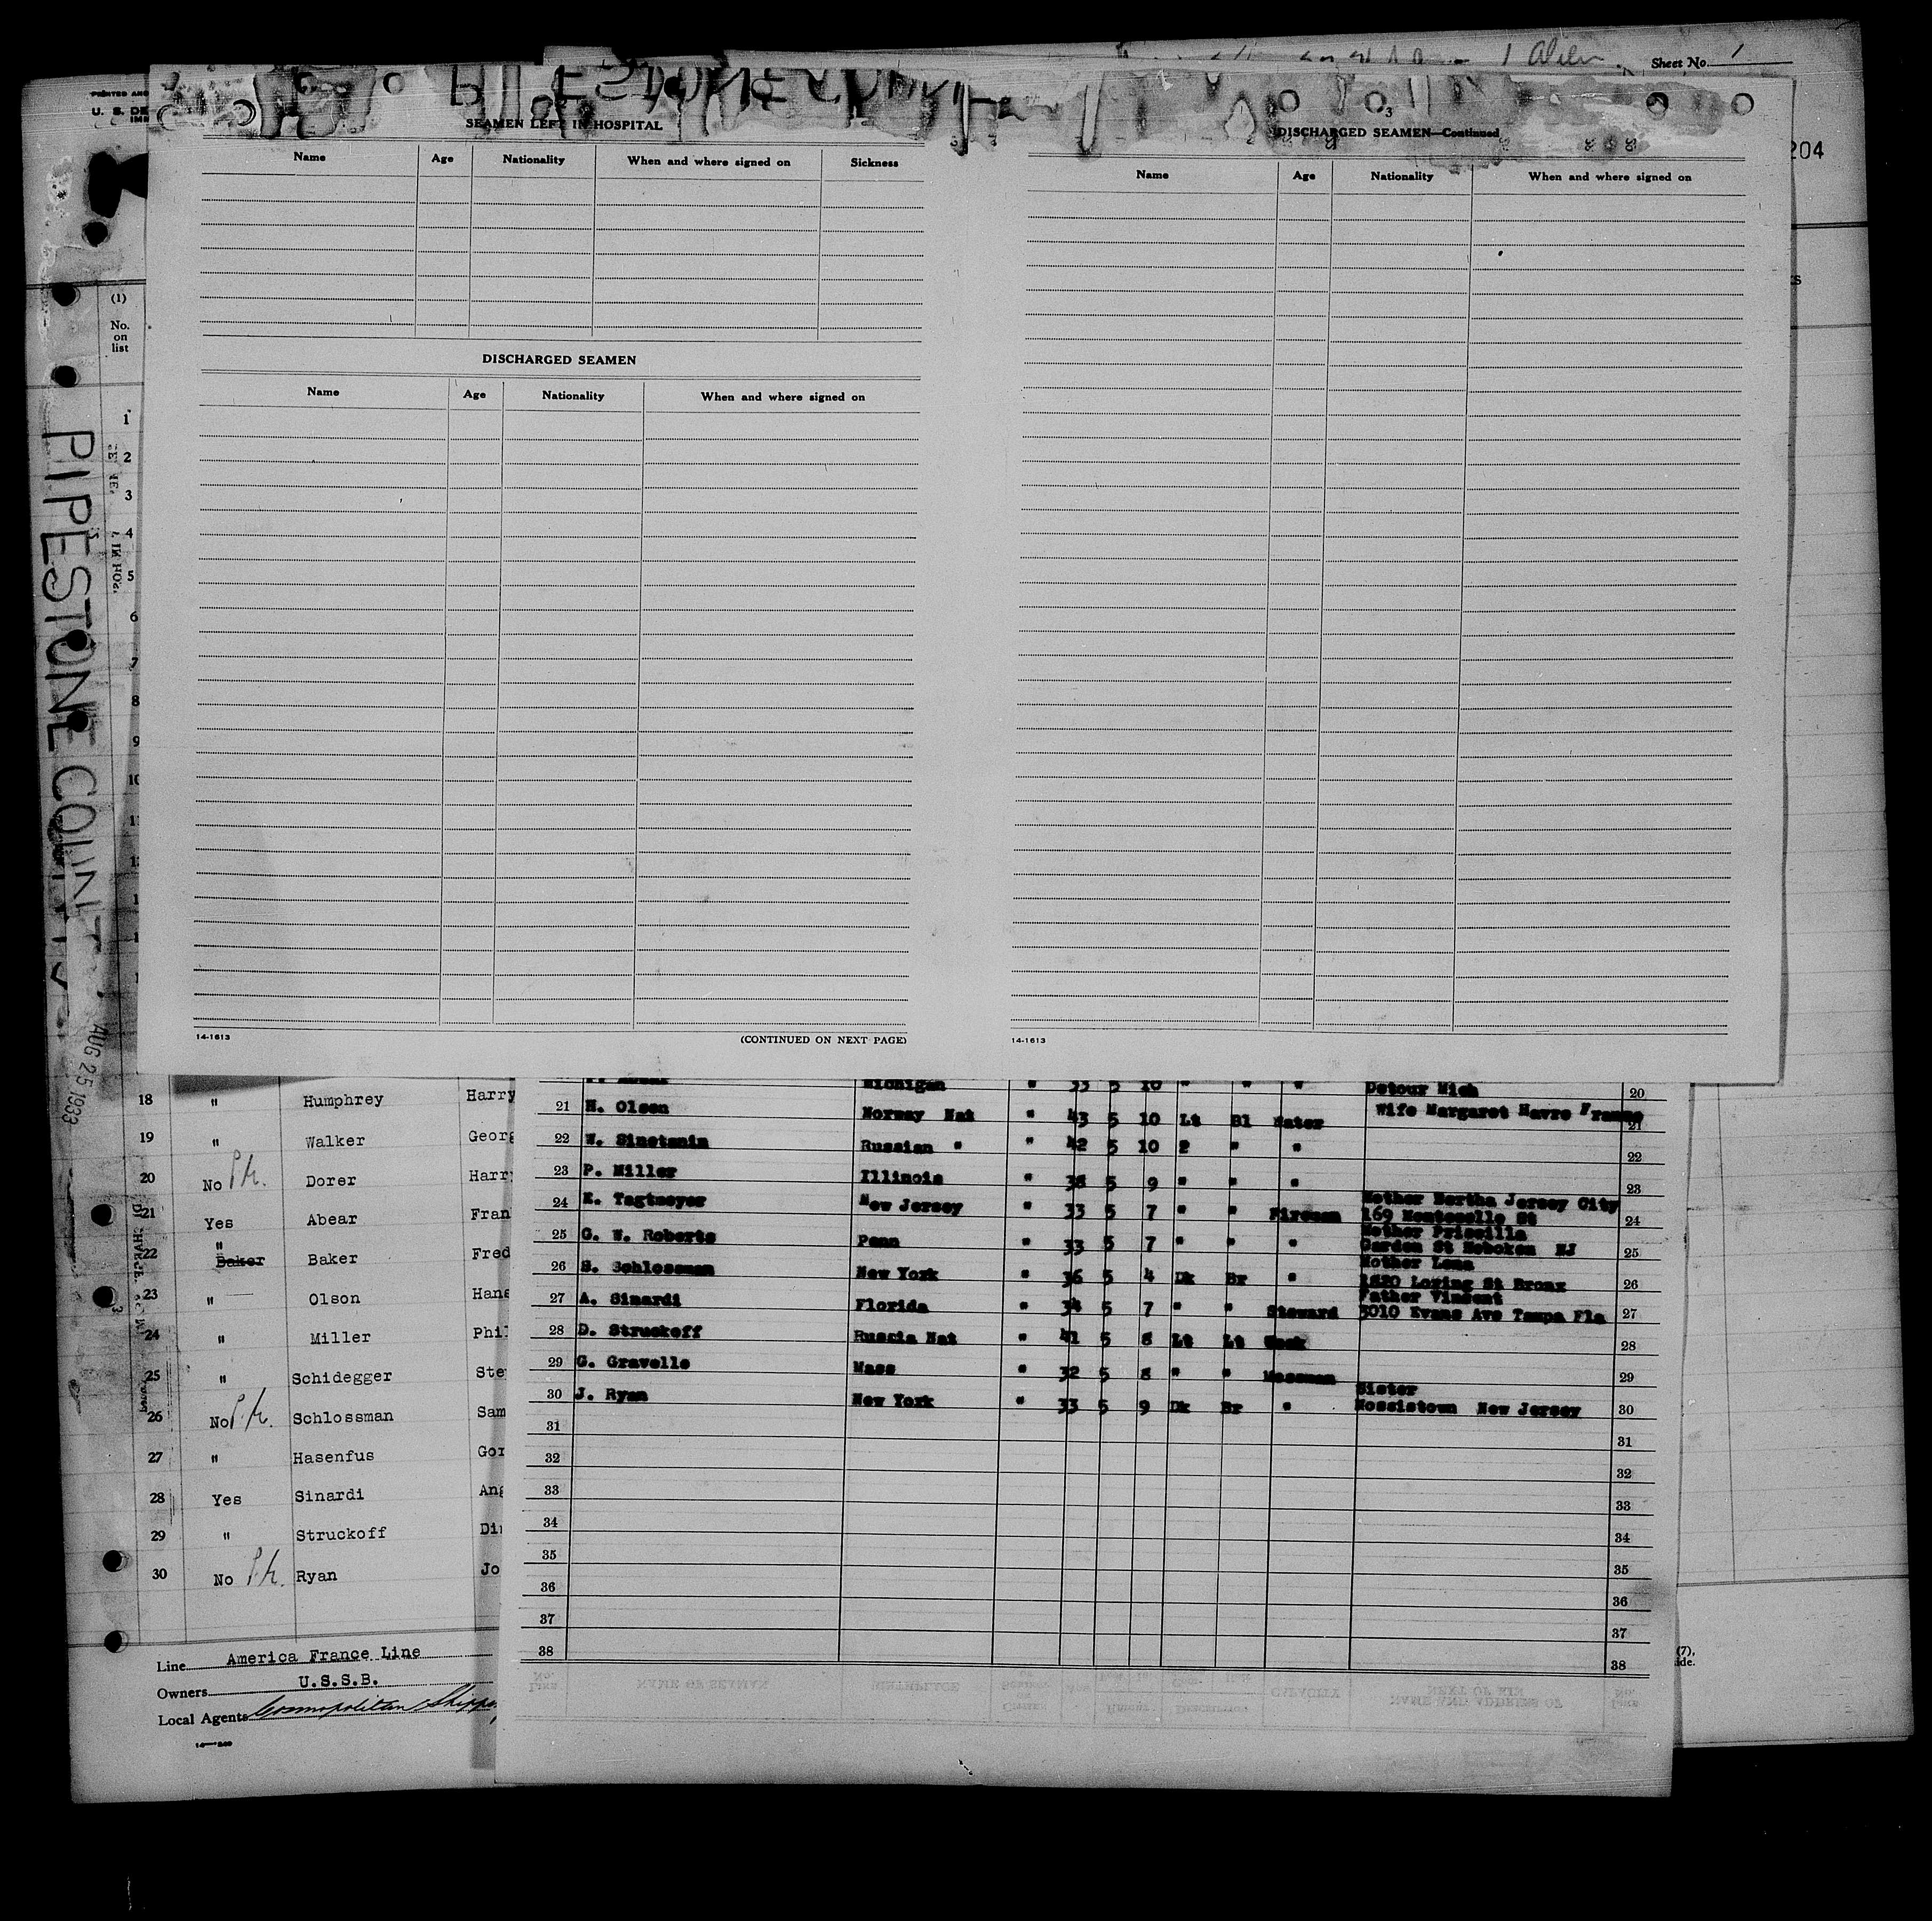 Sheet No. 1
1 Alien
PRINTED AND
U. S. DE
204
SEAMEN LEFT IN HOSPITAL
Name Age Nationality When and where signed on Sickness
DISCHARGED SEAMEN
Name Age Nationality When and where signed on
14-1613 (CONTINUED ON NEXT PAGE)
3
DISCHARGED SEAMEN—Continued
Name Age Nationality When and where signed on
14-1613
PIPESTONE COUNT
AUG 25 1933
(1)
No.
on
list
1
2
3
4
5
6
7
8
9
10
18 " Humphrey Harry
19 " Walker Georg
20 No Dorer Harry
21 Yes Abear Fran
22 " Baker Baker Fred
23 " Olson Hans
24 " Miller Phil
25 " Schidegger Ste
26 No Schlossman Sam
27 " Hasenfus Gor
28 Yes Sinardi Ang
29 " Struckoff Dir
30 No Ryan Jo
Line America France Line
Owners U.S.S.B.
Local Agents Cosmopolitan Shipping
Michigan " 33 5 10 " " " Detour Mich 20
21 H. Olsen Norway Nat " 43 5 10 Lt Bl Water Wife Margaret Havre France 21
22 W. Sinetanin Russian " " 42 5 10 " " 22
23 P. Miller Illinois " 38 5 9 " " " 23
24 E. Tagtmeyer New Jersey " 33 5 7 " " Fireman Mother Bertha Jersey City
169 Montecello St 24
25 G. W. Roberts Penn " 33 5 7 " " " Mother Priscilla
Garden St Hoboken NJ 25
26 S. Schlossman New York " 36 5 4 Dk Br " Mother Lena
1820 Loring St Bronx 26
27 A. Sinardi Florida " 34 5 7 " " Steward Father Vincent
3010 Evans Ave Tampa Fla 27
28 D. Struckoff Russia Nat " 41 5 8 Lt Lt Cook 28
29 G. Gravelle Mass " 32 5 8 " " Messman 29
30 J. Ryan New York " 33 5 9 Dk Br " Sister
Mossistown New Jersey 30
31 31
32 32
33 33
34 34
35 35
36 36
37 37
38 38